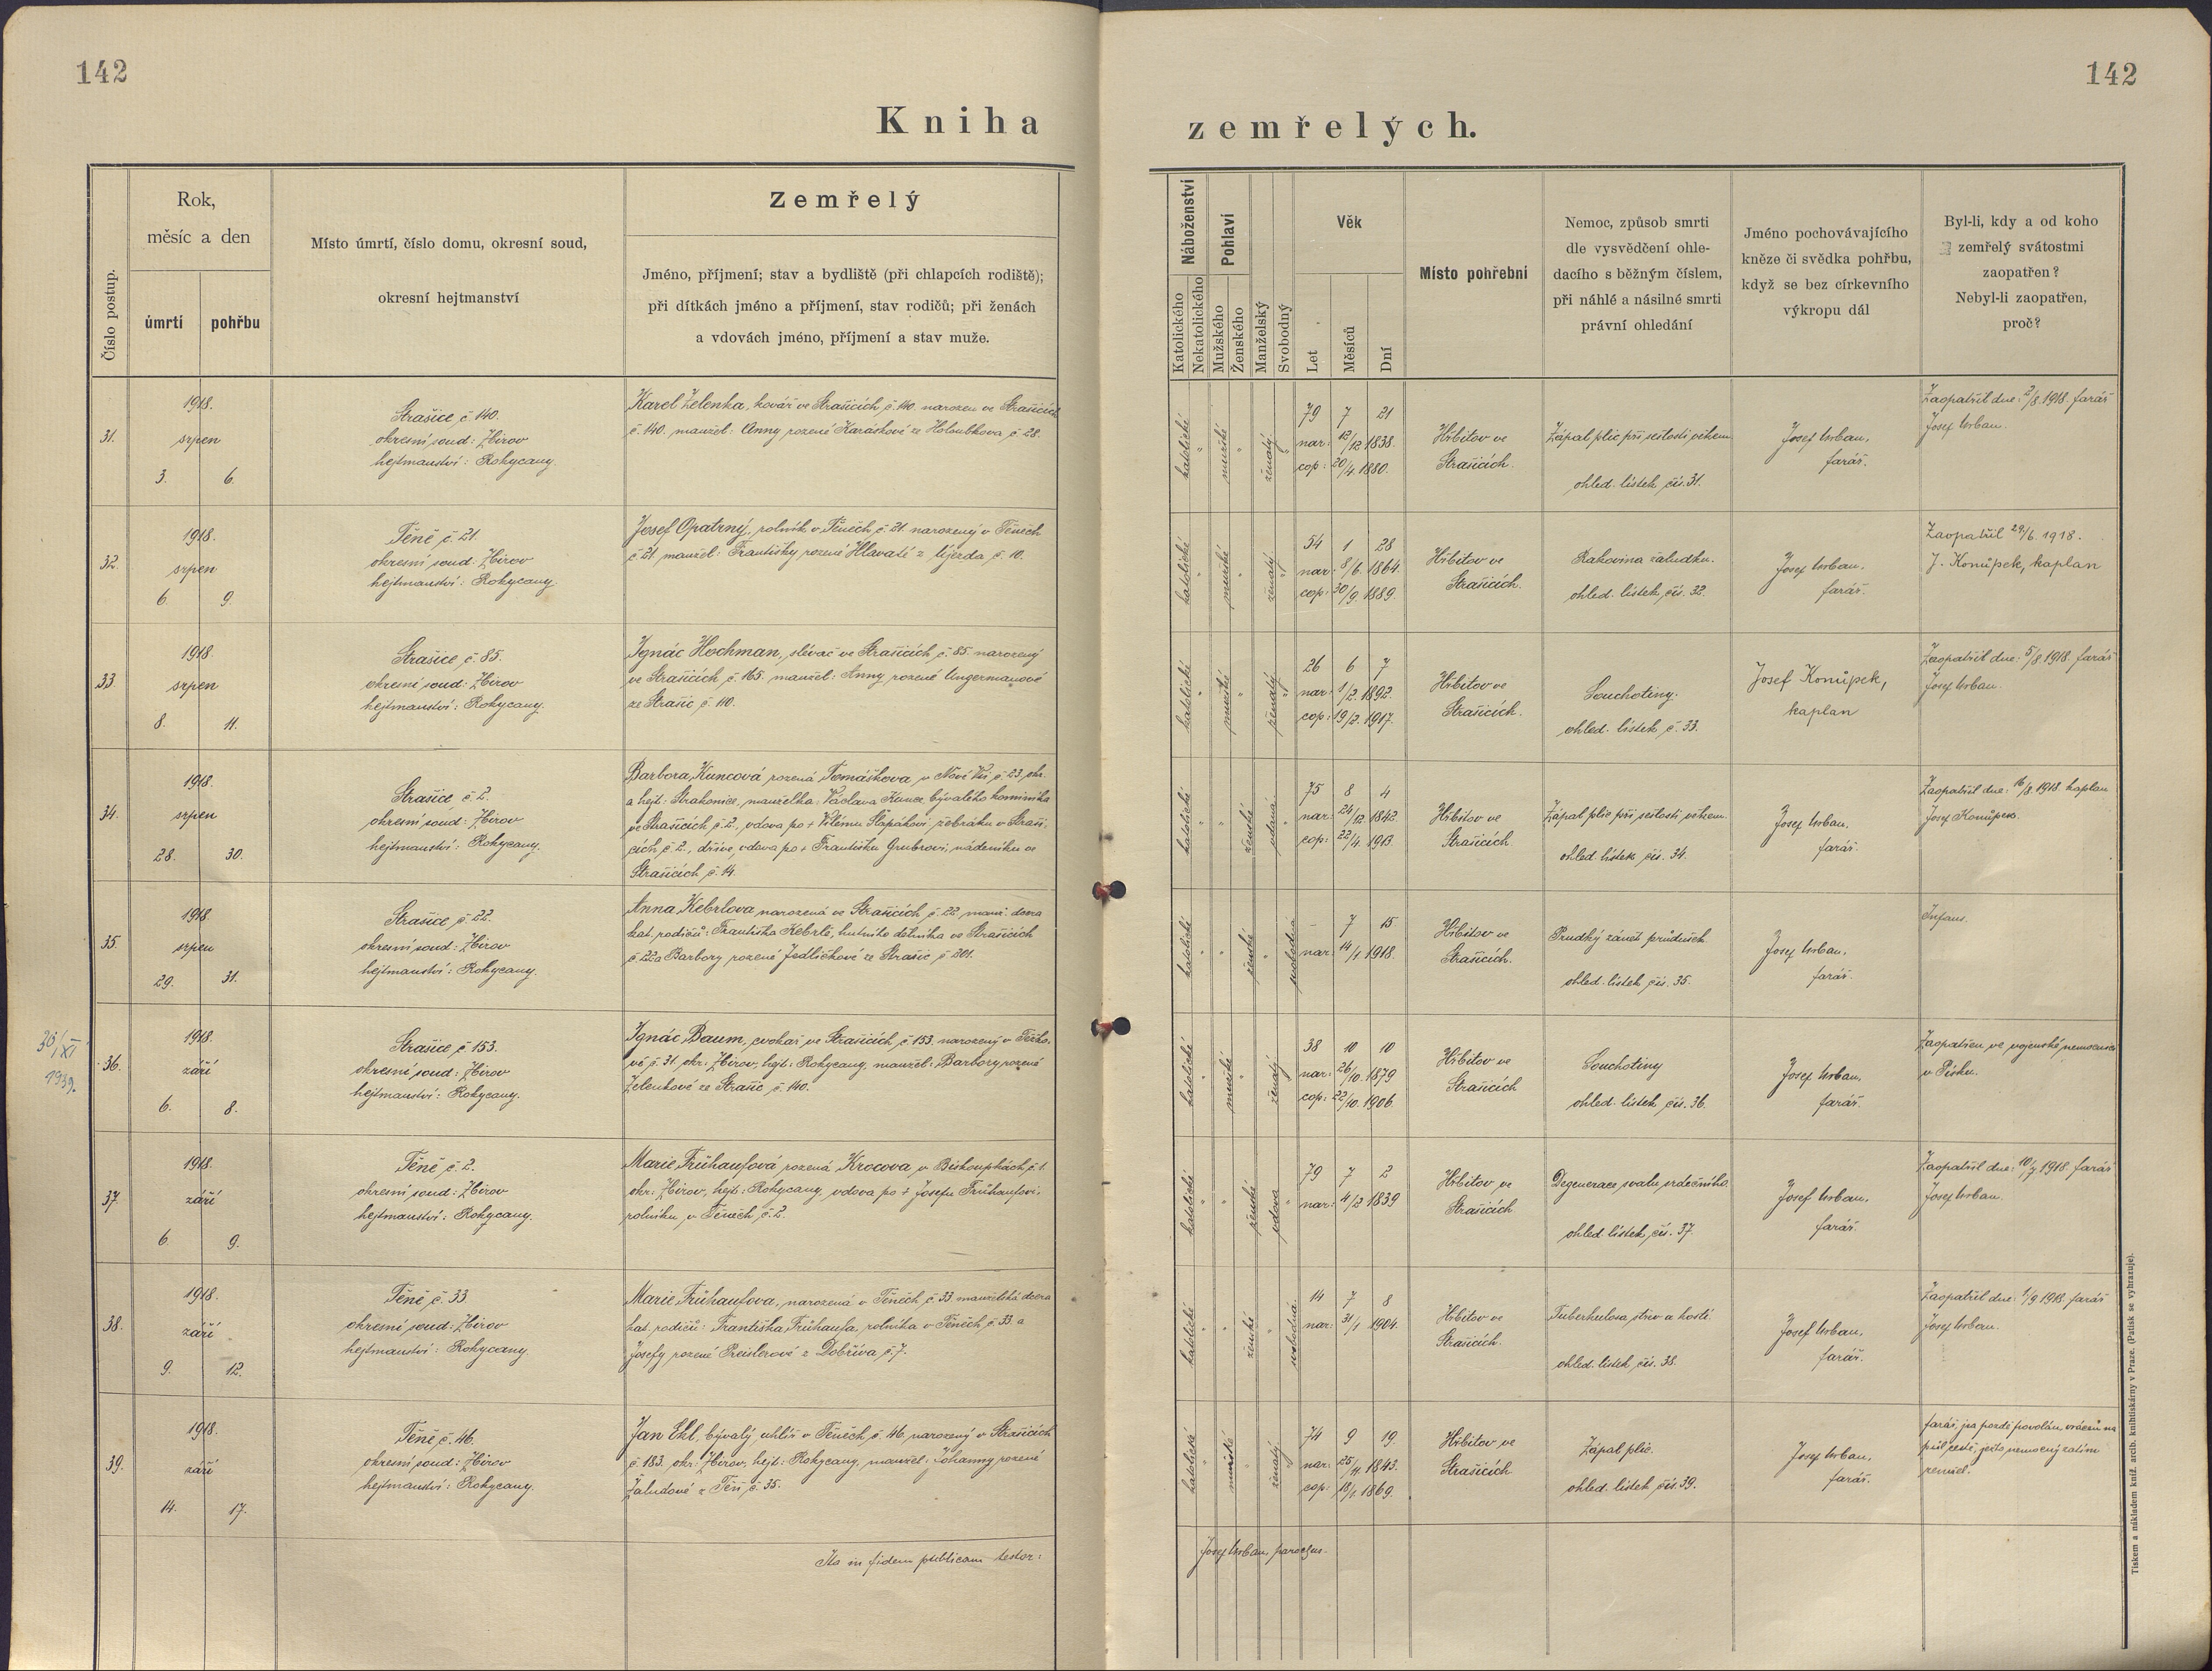 142
142
Kniha zemřelých.
Číslo postup.
Rok,
měsíc a den
úmrtí
pohřbu
Místo úmrtí, číslo domu, okresní soud,
okresní hejtmanství
Zemřelý
Jméno, příjmení; stav a bydliště (při chlapcích rodiště);
při dítkách jméno a příjmení, stav rodičů; při ženách
a vdovách jméno, příjmení a stav muže.
Náboženství
Katolického
Nekatolického
Pohlaví
Mužského
Ženského
Manželský
Svobodný
Věk
Let
Měsíců
Dní
Místo pohřební
Nemoc, způsob smrti
dle vysvědčení ohle-
dacího s běžným číslem,
při náhlé a násilné smrti
právní ohledání
Jméno pochovávajícího
kněze či svědka pohřbu,
když se bez církevního
výkropu dál
Byl-li, kdy a od koho
zemřelý svátostmi
zaopatřen?
Nebyl-li zaopatřen,
proč?
31.
1918.
srpen
3. 6.
Strašice č. 140.
okresní soud: Zbirov
hejtmanství: Rokycany.
Karel Zelenka, kovář ve Strašicích č. 140. narozen ve Strašicích
č. 140. manžel: Anny rozené Karáskové ze Holoubkova č. 28.
katolické
mužské
ženatý
79 7 21
nar: 12/12 1838.
cop: 20/4. 1880.
Hřbitov ve
Strašicích.
Zápal plic při sešlosti věkem.
ohled. lístek čís. 31.
Josef Urban,
farář.
Zaopatřil dne: 2/8. 1918. farář
Josef Urban.
32.
1918.
srpen
6. 9.
Těně č. 21.
okresní soud: Zbirov
hejtmanství: Rokycany
Josef Opatrný, rolník v Těnech č. 21. narozený v Těnech
č. 21. manžel: Františky rozené Hlavaté z Újezda č. 10.
katolické
mužské
ženatý
54 1 28
nar: 8/6. 1864.
cop: 30/9. 1889.
Hřbitov ve
Strašicích.
Rakovina žaludku.
ohled. lístek čís. 32.
Josef Urban,
farář.
Zaopatřil 29/6. 1918.
J. Konůpek, kaplan
33.
1918.
srpen
8. 11.
Strašice č. 85.
okresní soud: Zbirov
hejtmanství: Rokycany.
Ignác Hochman, slévač ve Strašicích č. 85. narozený
ve Strašicích č. 165. manžel: Anny rozené Ungermanové
ze Strašic č. 110.
katolické
mužské
ženatý
26 6 7
nar: 1/2. 1892.
cop: 19/2. 1917.
Hřbitov ve
Strašicích.
Souchotiny.
ohled. lístek č. 33.
Josef Konůpek,
kaplan
Zaopatřil dne: 5/8. 1918. farář
Josef Urban.
34.
1918.
srpen
28. 30.
Strašice č. 2.
okresní soud: Zbirov
hejtmanství: Rokycany.
Barbora Kuncová rozená Tomáškova v Nové Vsi č. 23, okr.
a hejt: Strakonice, manželka: Václava Kunce bývalého kominíka
ve Strašicích č. 2., vdova po + Vilému Šlapákovi žebráku v Straši-
cích č. 2., dříve vdova po + Františku Grubrovi nádeníku ve
Strašicích č. 14.
katolické
ženské
vdaná
75 8 4
nar: 24/12. 1842.
cop: 22/4. 1913.
Hřbitov ve
Strašicích.
Zápal plic při sešlosti věkem.
ohled. lístek čís. 34.
Josef Urban,
farář.
Zaopatřil dne: 16/8. 1918. kaplan
Josef Konůpek.
35.
1918.
srpen
29. 31.
Strašice č. 22.
okresní soud: Zbirov
hejtmanství: Rokycany.
Anna Kebrlova narozená ve Strašicích č. 22. manž. dcera
kat. rodičů: Františka Kebrle, hutního dělníka ve Strašicích
č. 22 a Barbory rozené Jedličkové ze Strašic č. 201.
katolické
ženské
svobodná
- 7 15
nar: 14/1. 1918.
Hřbitov ve
Strašicích.
Prudký zánět průdušek
ohled. lístek čís. 35.
Josef Urban,
farář.
Infans.
30/XI
1939.
36.
1918.
září
6. 8.
Strašice č. 153.
okresní soud: Zbirov
hejtmanství: Rokycany.
Ignác Baum, cvokař ve Strašicích č. 153. narozený v Těško-
vě č. 31. okr. Zbirov, hejt: Rokycany, manžel: Barbory rozené
Zelenkové ze Strašic č. 140.
katolické
mužské
ženatý
38 10 10
nar: 26/10. 1879
cop: 22/10. 1906.
Hřbitov ve
Strašicích
Souchotiny
ohled. lístek čís. 36.
Josef Urban,
farář.
Zaopatřen ve vojenské nemocnici
v Písku.
37.
1918.
září
6. 9.
Těně č. 2.
okresní soud: Zbirov
hejtmanství: Rokycany.
Marie Frühaufová rozená Krocova v Biskoupkách č. 1.
okr: Zbirov, hejt: Rokycany, vdova po + Josefu Frühaufovi,
rolníku v Těnech č. 2.
katolické
ženské
vdova
79 7 2
nar: 4/2 1839
Hřbitov ve
Strašicích
Degenerace svalu srdečního.
ohled. lístek čís. 37.
Josef Urban,
farář.
Zaopatřil dne: 10/7. 1918. farář
Josef Urban.
38.
1918.
září
9. 12.
Těně č. 33
okresní soud: Zbirov
hejtmanství: Rokycany.
Marie Frühaufova, narozená v Těnech č. 33 manželská dcera
kat. rodičů: Františka Frühaufa, rolníka v Těnech č. 33. a
Josefy rozené Preislerové z Dobříva č. 7.
katolické
ženské
svobodná
14 7 8
nar: 31/1. 1904.
Hřbitov ve
Strašicích.
Tuberkulosa střev a kostí.
ohled. lístek čís. 38.
Josef Urban,
farář.
Zaopatřil dne: 1/9. 1918. farář
Josef Urban.
39.
1918.
září
14. 17.
Těně č. 46.
okresní soud: Zbirov
hejtmanství: Rokycany.
Jan Ekl, bývalý uhlíř v Těnech č. 46, narozený v Strašicích
č. 183. okr: Zbirov, hejt: Rokycany, manžel: Johanny rozené
Žaludové z Těň č. 35.
katolické
mužské
ženatý
74 9 19.
nar: 25/11. 1843.
cop: 18/1. 1869.
Hřbitov ve
Strašicích
Zápal plic.
ohled. lístek čís. 39.
Josef Urban,
farář.
farář, jsa pozdě povolán, vrácen na
půl cestě, ježto nemocný zatím
zemřel.
Ita in fidem publicam testor:
Josef Urban, parochus.
Tiskem a nákladem kníž. arcib. knihtiskárny v Praze. (Patisk se vyhrazuje).